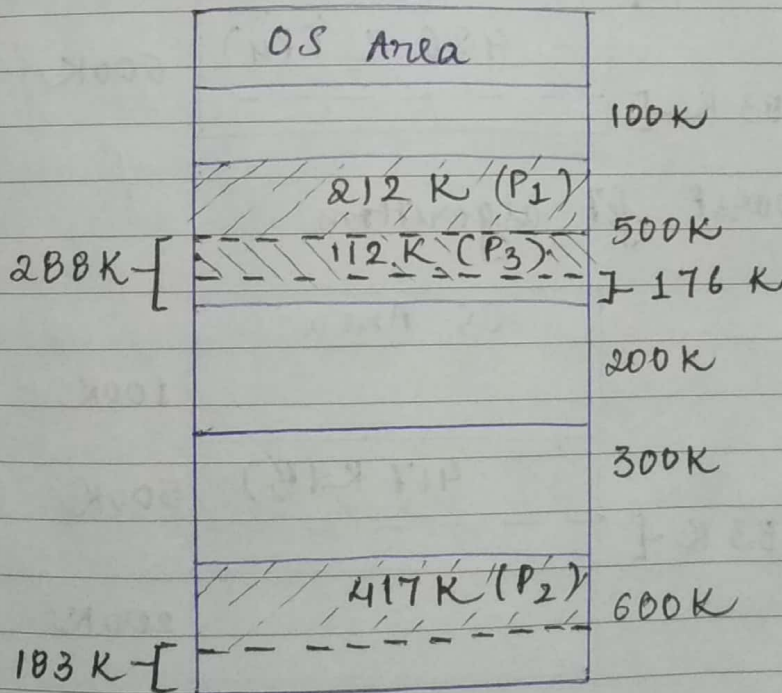 OS Area
100K
212 K (P1)
500K
288K
112 K (P3)
176 K
200K
300K
417K (P2)
600K
183 K